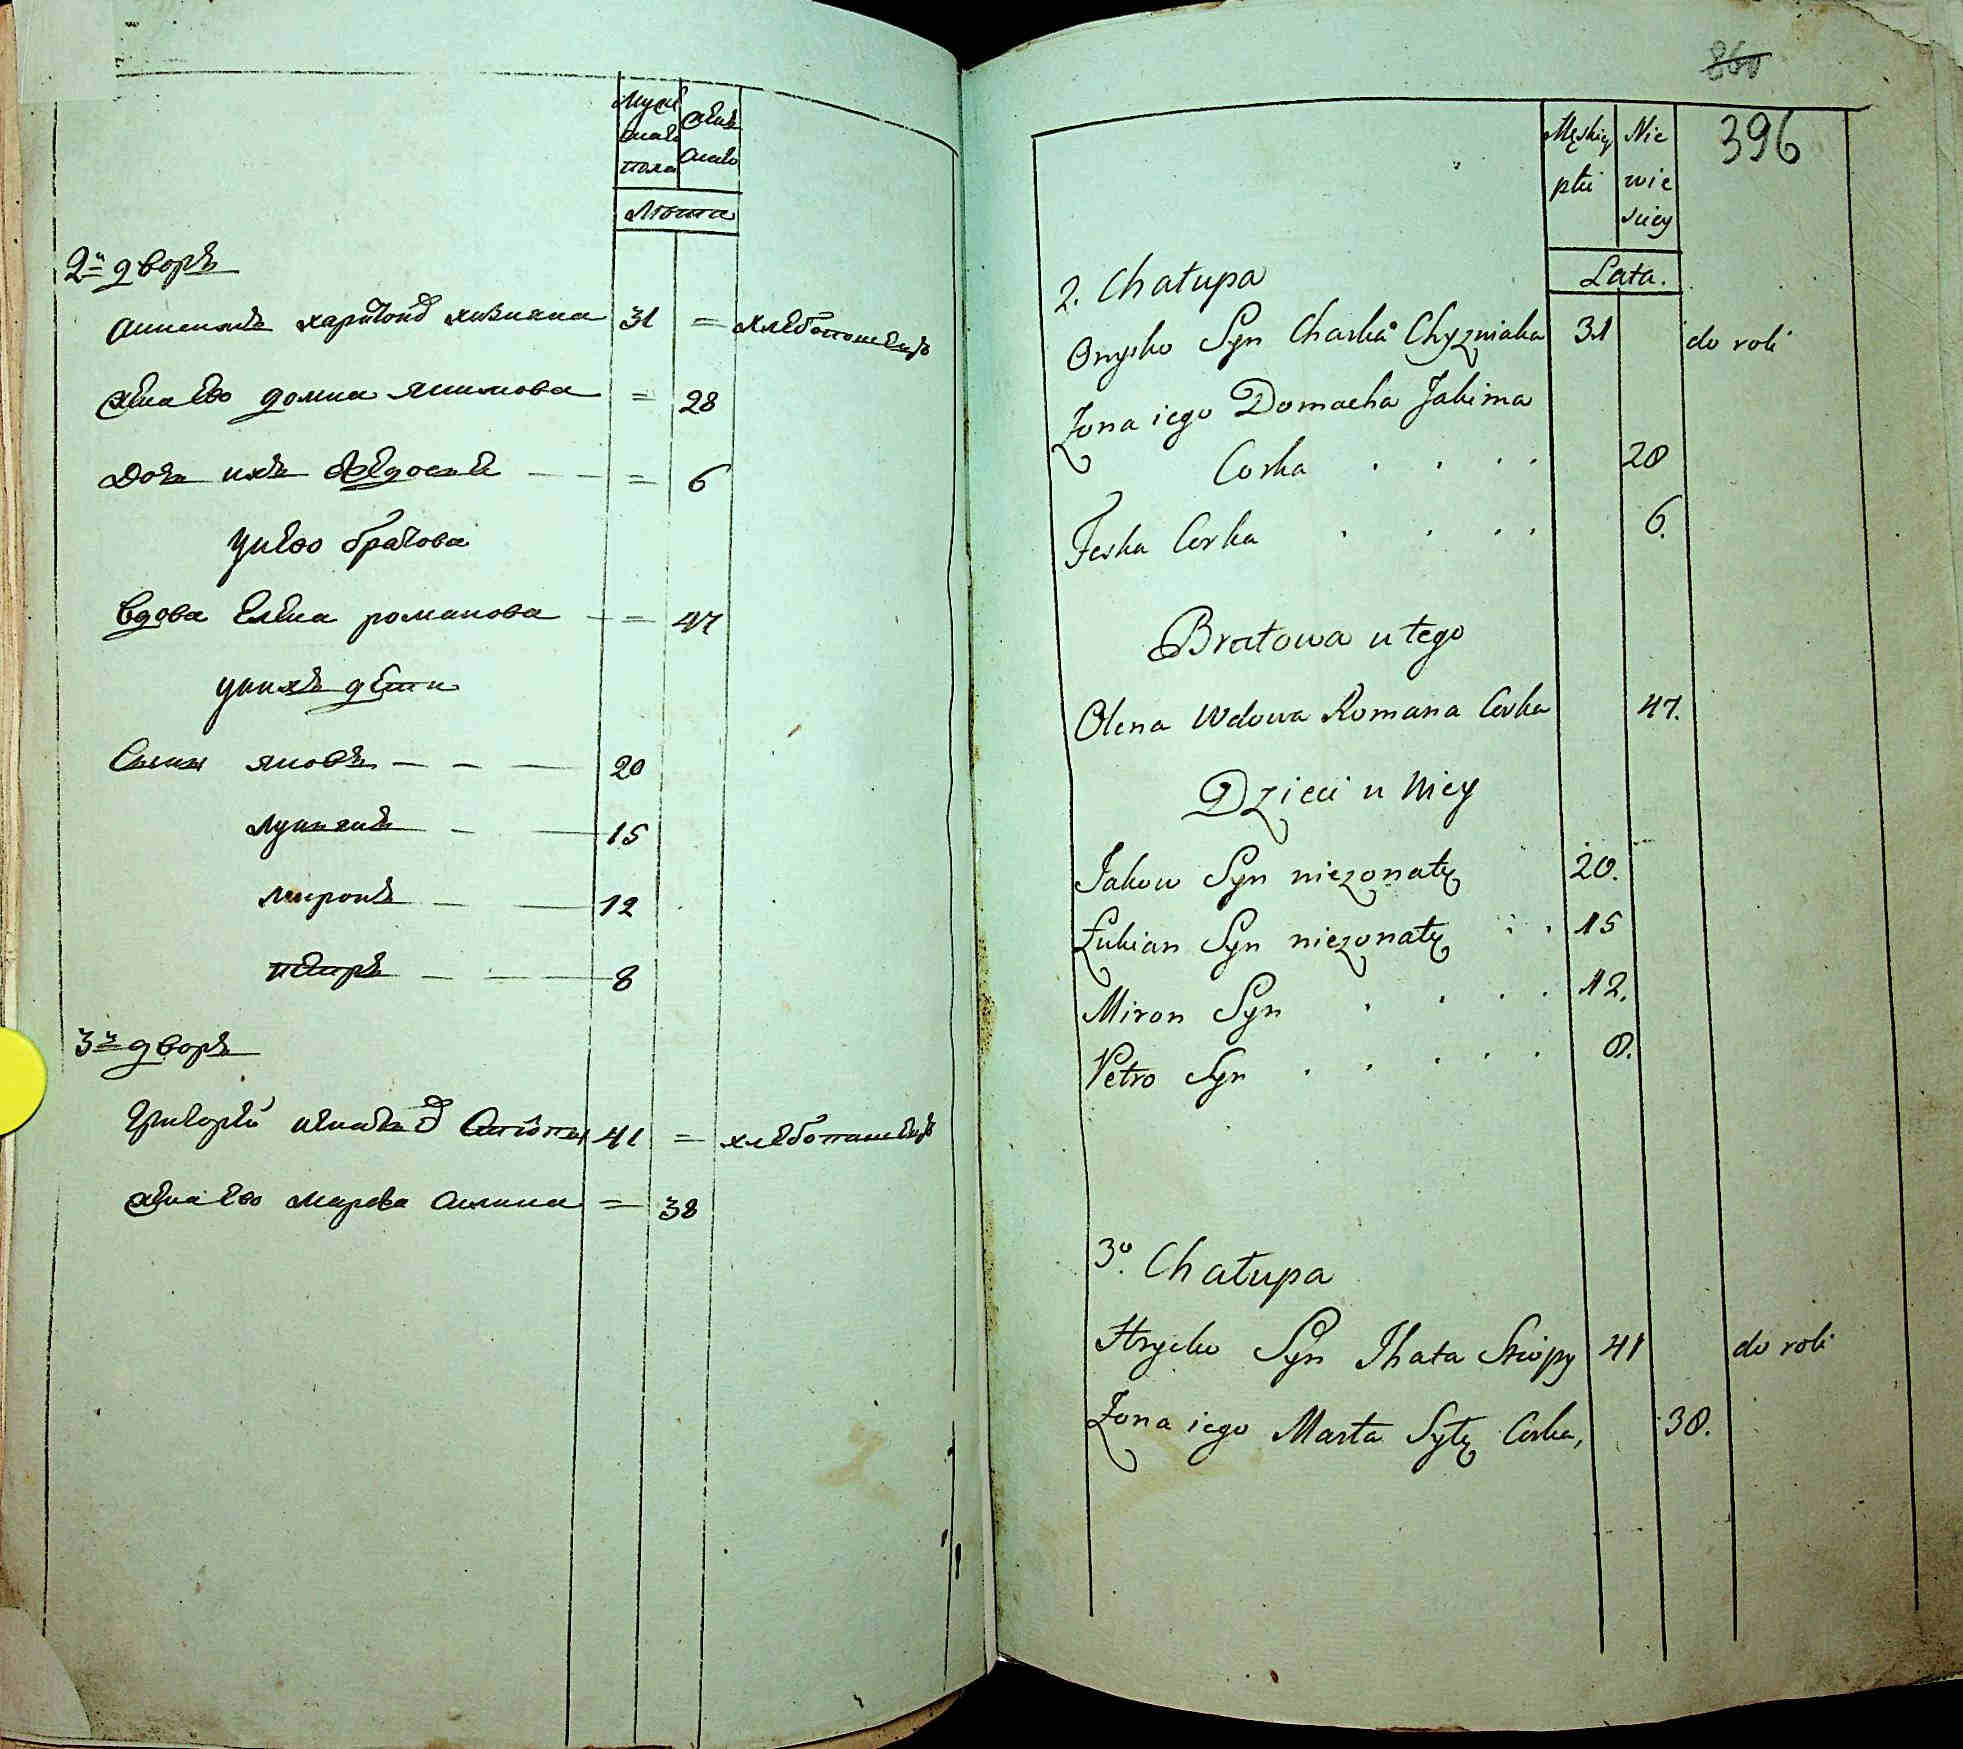 Муже
скаго
пола
Женс
скаго
Лѣта
2й дворъ
Анисимъ харитонов хизняка 31 = хлебопашецъ
Жена Его домна Якимова = 28
Дочь ихъ Федосья — — = 6
у него братова
Вдова Елена романова — = 47
у нихъ дети
Сыны яковъ — — — 20
лукьянъ — — 15
миронъ — — 12
петръ — — 8
3й дворъ
Григорей игнатов 41 = хлебопашецъ
Жена Его марфа = 38
860
396
Męskiey
płci
Nie
wie
sciey
Lata.
2. Chałupa
Onysko Syn Charka Chyzniaka 31 do roli
Zona iego Domacha Jakima
Corka . . . . 28
Feska Corka . . . . 6.
Bratowa u tego
Olena Wdowa Romana Corka 47.
Dzieci u Niey
Jakow Syn niezonaty 20.
Łukian Syn niezonaty . . 15
Miron Syn . . . . 12.
Petro Syn . . . . . 8.
3o. Chałupa
Hrycko Syn Ihata Stiopy 41 do roli
Zona iego Marta Syły Corka, 38.